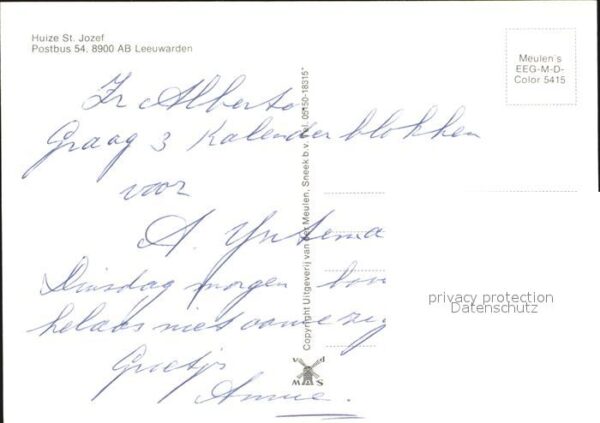 Huize St. Jozef
Postbus 54, 8900 AB Leeuwarden
Meulen's
EEG-M-D-
Color 5415
Zr Alberto
Graag 3 Kalenderblokken
voor
A. Yntema
Dinsdag morgen
helaas niet aanwezig
Groetjes
Annie.
Copyright Uitgeverij van der Meulen, Sneek b.v. Tel. 05150-18315*
privacy protection
Datenschutz